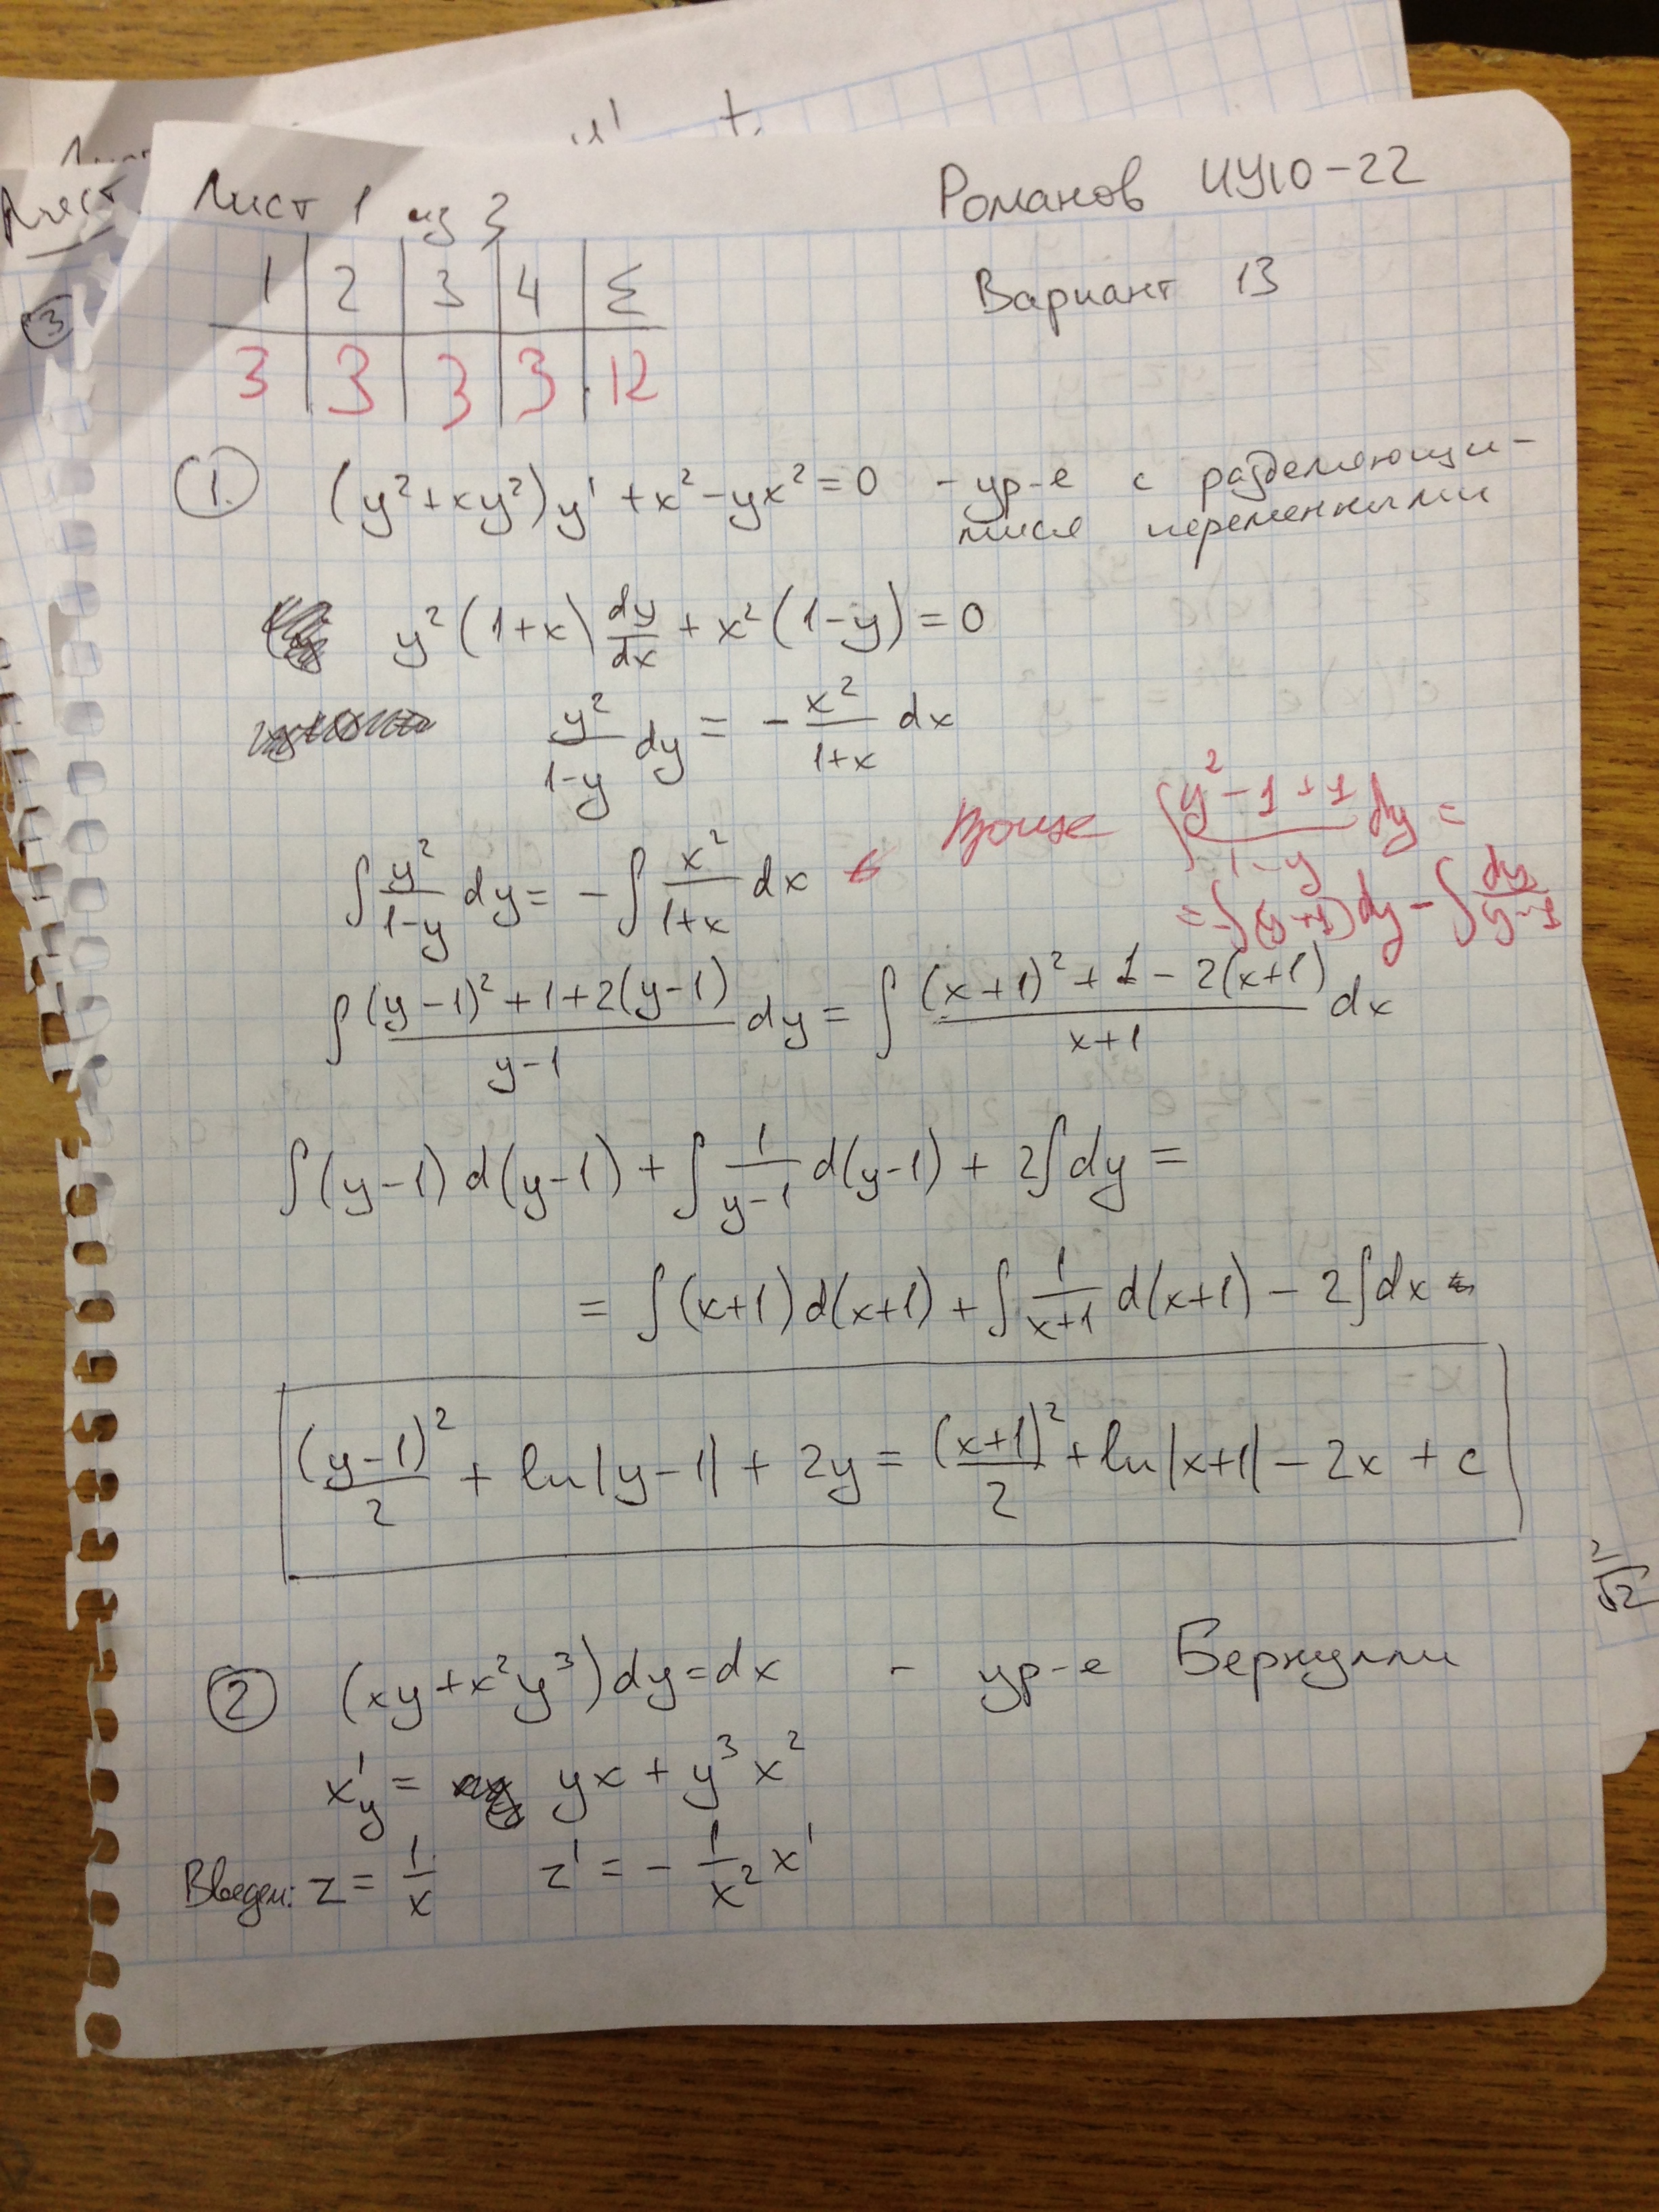 Лист 1 из 3
Романов ИУ10-22
1 2 3 4 Σ
Вариант 13
3 3 3 3 12
1. (y²+xy²)y' + x² - yx² = 0 - ур-е с разделяющи-
мися переменными
y²(1+x) dy/dx + x²(1-y) = 0
y²/(1-y) dy = - x²/(1+x) dx
∫ y²/(1-y) dy = - ∫ x²/(1+x) dx
Проще ∫ (y²-1+1)/(1-y) dy =
= -∫(y+1)dy - ∫ dy/(y-1)
∫ ((y-1)²+1+2(y-1))/(y-1) dy = ∫ ((x+1)²+1-2(x+1))/(x+1) dx
∫(y-1)d(y-1) + ∫ 1/(y-1) d(y-1) + 2∫dy =
= ∫(x+1)d(x+1) + ∫ 1/(x+1) d(x+1) - 2∫dx
(y-1)²/2 + ln|y-1| + 2y = (x+1)²/2 + ln|x+1| - 2x + c
2 (xy+x²y³)dy=dx - ур-е Бернулли
x'y = yx + y³x²
Введем: z = 1/x z' = - 1/x² x'
Лист
3